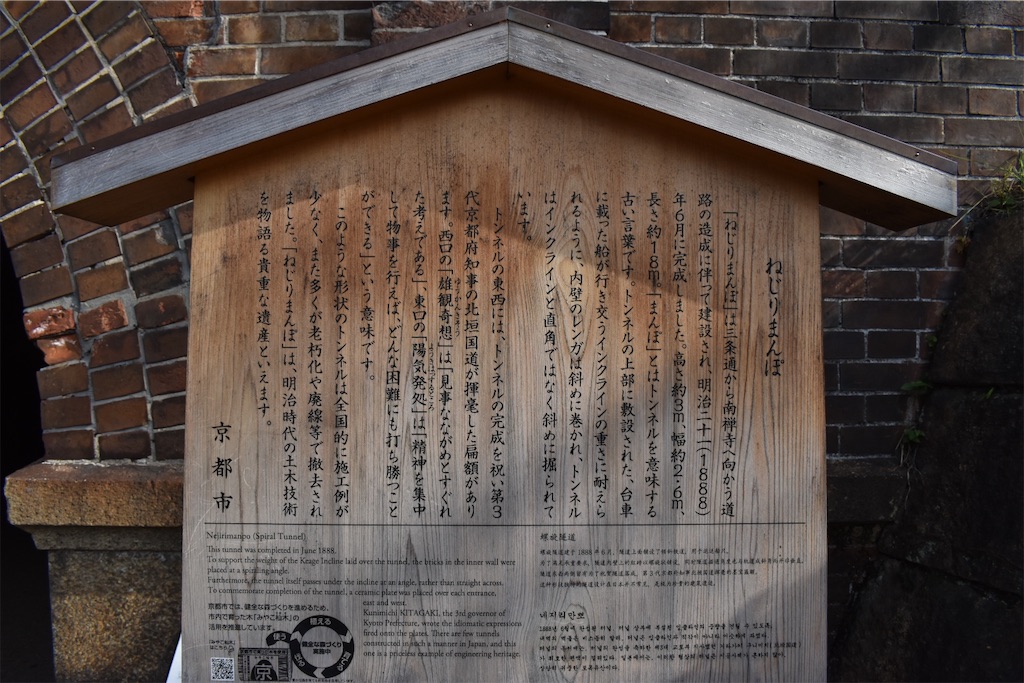 ねじりまんぽ
「ねじりまんぽ」は三条通から南禅寺へ向かう道
路の造成に伴って建設され、明治二十一（1888）
年6月に完成しました。高さ約3m、幅約2.6m、
長さ約18m。「まんぽ」とはトンネルを意味する
古い言葉です。トンネルの上部に敷設された、台車
に載った船が行き交うインクラインの重さに耐えら
れるように、内壁のレンガは斜めに巻かれ、トンネル
はインクラインと直角ではなく斜めに掘られて
います。
トンネルの東西には、トンネルの完成を祝い第3
代京都府知事の北垣国道が揮毫した扁額があり
ます。西口の「雄観奇想」は「見事なながめとすぐれ
た考えである」、東口の「陽気発処」は「精神を集中
して物事を行えば、どんな困難にも打ち勝つこと
ができる」という意味です。
このような形状のトンネルは全国的に施工例が
少なく、また多くが老朽化や廃線等で撤去され
ました。「ねじりまんぽ」は、明治時代の土木技術
を物語る貴重な遺産といえます。
京都市
Nejirimanpo (Spiral Tunnel)
This tunnel was completed in June 1888.
To support the weight of the Keage Incline laid over the tunnel, the bricks in the inner wall were
placed at a spiraling angle.
Furthermore, the tunnel itself passes under the incline at an angle, rather than straight across.
To commemorate completion of the tunnel, a ceramic plate was placed over each entrance,
east and west.
Kunimichi KITAGAKI, the 3rd governor of
Kyoto Prefecture, wrote the idiomatic expressions
fired onto the plates. There are few tunnels
constructed in such a manner in Japan, and this
one is a priceless example of engineering heritage.
京都市では、健全な森づくりを進めるため、
市内で育った木「みやこ杣木」の
活用を推進しています。
植える
使う
健全な森づくり
実践中
京
螺旋隧道
네지리만뽀